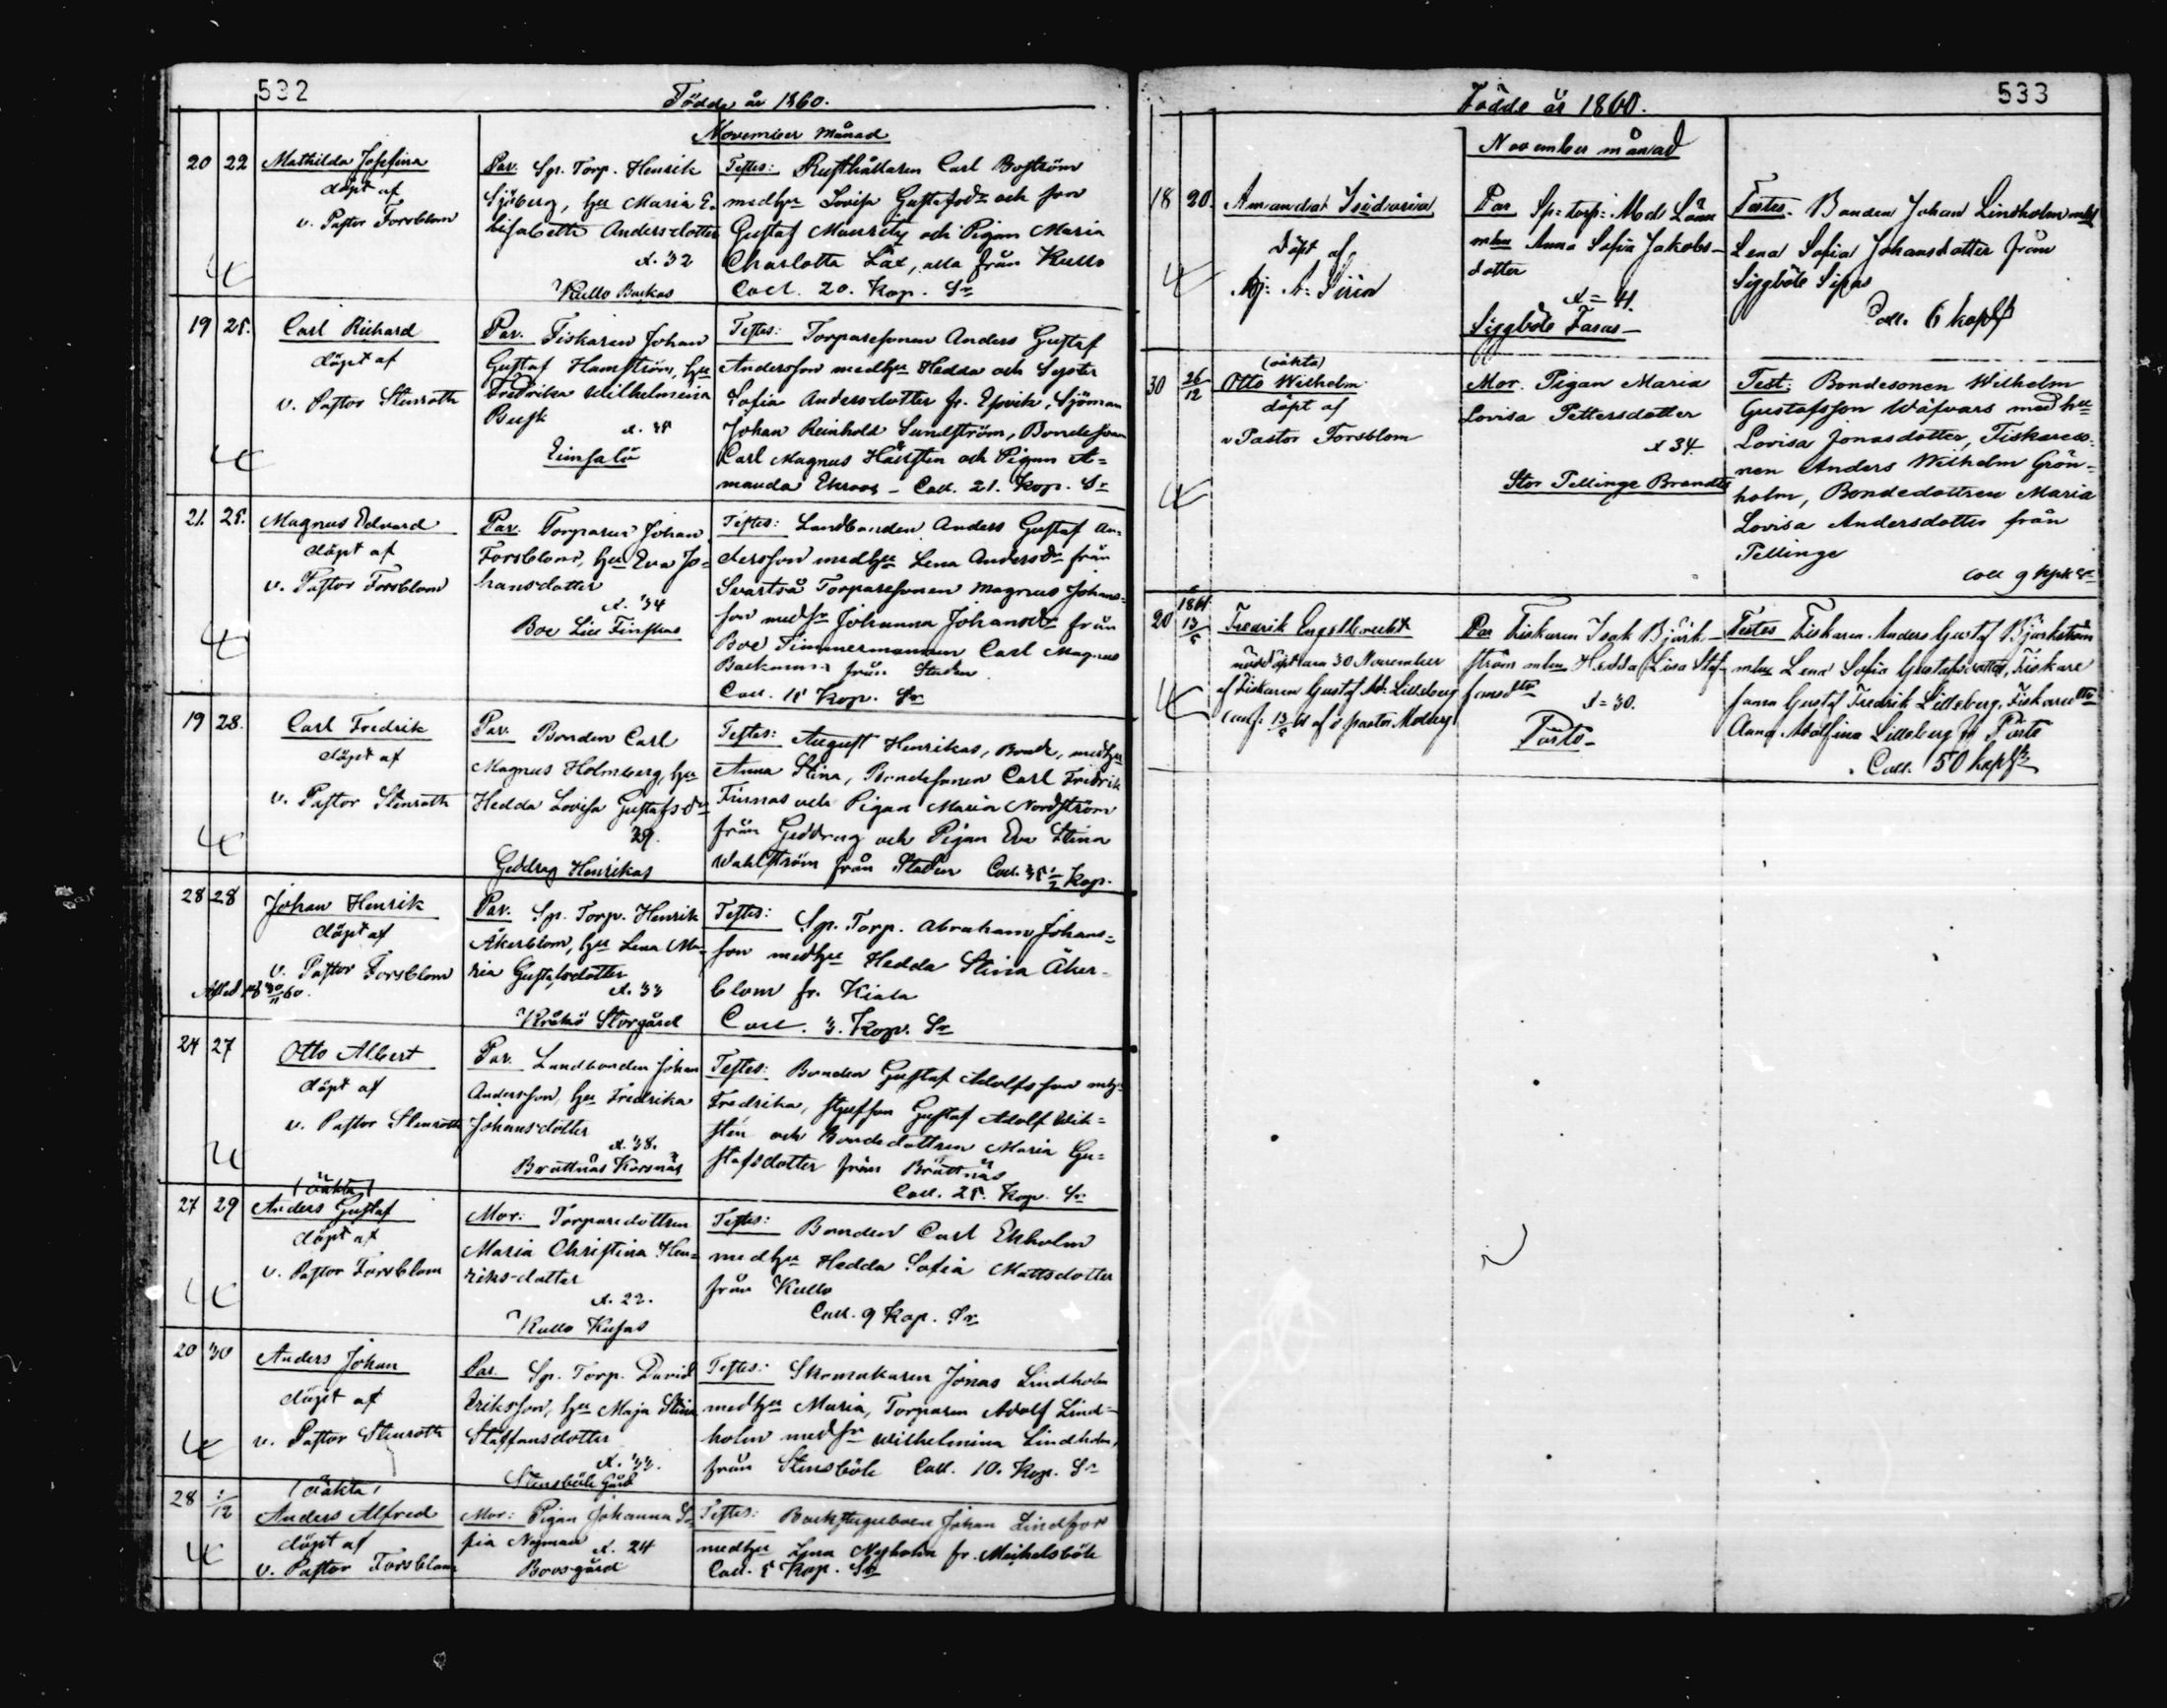 532
Födde år 1860.
November Månad
20 22 Mathilda Josefina
döpt af
v. Pastor Forsblom
Par. Sp. Torp. Henrik
Sjöberg, hu Maria E-
lisabeth Andersdotter
x. 32
Kullo Backas
Testes: Rusthållaren Carl Boström
med hu Lovisa Gustafsdr och son
Gustaf Mauritz och Pigan Maria
Charlotta Lax, alla från Kullo
Coll. 20. Kop. Sr
19 25. Carl Richard
döpt af
v. Pastor Stenroth
Par. Fiskaren Johan
Gustaf Hamström, hu
Fredrika Wilhelmina
Busk
Eimsalö
Testes: Torparesonen Anders Gustaf
Andersson med hu Hedda och Syster
Sofia Andersdotter fr. Epvik, Sjöman
Johan Reinhold Sundström, Bondesonen
Carl Magnus Hållsten och Pigan A=
manda Ekroos - Coll. 21. Kop. Sr
21. 25. Magnus Edvard
döpt af
v. Pastor Forsblom
Par. Torparen Johan
Forsblom, hu Eva Jo=
hansdotter
x. 34
Boe Lill Finskas
Testes: Landbonden Anders Gustaf An-
dersson med hu Lena Andersdr från
Svartså Torparesonen Magnus Johans=
son med sr Johanna Johansdr från
Boe Timmermannen Carl Magnus
Backman från Staden
Coll. 15 Kop. Sr
19 28. Carl Fredrik
döpt af
v. Pastor Stenroth
Par. Bonden Carl
Magnus Holmberg, hu
Hedda Lovisa Gustafsdr
29.
Geddrag Henrikas
Testes: August Henrikas, Bonde, med hu
Anna Stina, Bondesonen Carl Fredrik
Finnas och Pigan Maria Nordström
från Geddrag och Pigan Eva Stina
Wahlström från Staden Coll. 35 1/2 Kop.
28 28 Johan Henrik
döpt af
v. Pastor Forsblom
Afled 30/11 60.
Par. Sp. Torp. Henrik
Åkerblom, hu Lena Ma-
ria Gustafsdotter
x. 33
Kråkö Storgård
Testes: Sp. Torp. Abraham Johans=
son med hu Hedda Stina Åker-
blom fr. Kiala
Coll. 3. Kop. Sr
24 27 Otto Albert
döpt af
v. Pastor Stenroth
Par. Landbonden Johan
Andersson, hu Fredrika
Johansdotter
x. 38.
Brattnäs Korsnäs
Testes: Bonden Gustaf Adolfsson m hu
Fredrika, styfson Gustaf Adolf Wik=
stén och Bondedottren Maria Gu=
stafsdotter från Brattnäs
Coll. 25. Kop. Sr
(oäkta)
27 29 Anders Gustaf
döpt af
v. Pastor Forsblom
Mor: Torparedottren
Maria Christina Hen=
riksdotter
x. 22.
Kullo Kusas
Testes: Bonden Carl Ekholm
med hu Hedda Sofia Mattsdotter
från Kullo
Coll. 9 Kop. Sr
20 30 Anders Johan
döpt af
v. Pastor Stenroth
Par. Sp. Torp. David
Eriksson, hu Maja Stina
Staffansdotter
x. 33.
Stensböle Gård
Testes: Skomakaren Jonas Lindholm
med hu Maria, Torparen Adolf Lind=
holm med sr Wilhelmina Lindholm,
från Stensböle Coll. 10. Kop. Sr
(oäkta)
28 1/12 Anders Alfred
döpt af
v. Pastor Forsblom
Mor: Pigan Johanna So-
fia Nyman x. 24
Boosgård
Testes: Backstuguboen Johan Lindfors
med hu Lena Nyholm fr. Mickelsböle
Coll. 5 Kop. Sr
533
Födde år 1860.
November månad
18 20. Amanda Isidoria
döpt af
Aj: A: Sirén
Par Sp: torp: Ad. Lönn
m hu Anna Sofia Jakobs-
dotter
x = 41.
Siggböle Fasas
Testes. Bonden Johan Lindholm m hu
Lena Sofia Johansdotter från
Siggböle Sipas
Coll. 6 kop Sr
(oäkta)
30 26/12 Otto Wilhelm
döpt af
v Pastor Forsblom
Mor. Pigan Maria
Lovisa Pettersdotter
x 34.
Stor Pellinge Brandts
Test: Bondesonen Wilhelm
Gustafsson Wäfvars med hu
Lovisa Jonasdotter, Fiskareso-
nen Anders Wilhelm Grön-
holm, Bondedottren Maria
Lovisa Andersdotter från
Pellinge
Coll 9 kpk Sr
1861
20 13/5 Fredrik Engelbrecht
nöddöpt den 30 November
af Fiskaren Gustaf Ad: Lilleberg
conf: 13/5 61 af v pastor Moberg
Par Fiskaren Isak Björk-
ström m hu Hedda Lisa Staf-
fansdtr x = 30.
Pörtö
Testes Fiskaren Anders Gustaf Björkström
m hu Lena Sofia Gustafsdotter, Fiskare
sonen Gustaf Fredrik Lilleberg, Fiskare dtr
Anna Adolfina Lilleberg fr Pörtö
Coll. 50 kop Sr